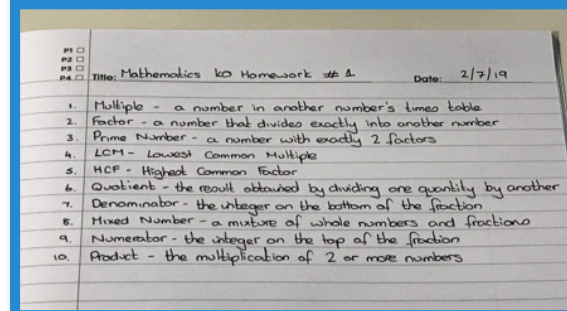 P1
P2
P3
P4 Title: Mathematics KO Homework # 1 Date: 2/7/19
1. Multiple - a number in another number's times table
2. Factor - a number that divides exactly into another number
3. Prime Number - a number with exactly 2 factors
4. LCM - Lowest Common Multiple
5. HCF - Highest Common Factor
6. Quotient - the result obtained by dividing one quantity by another
7. Denominator - the integer on the bottom of the fraction
8. Mixed Number - a mixture of whole numbers and fractions
9. Numerator - the integer on the top of the fraction
10. Product - the multiplication of 2 or more numbers